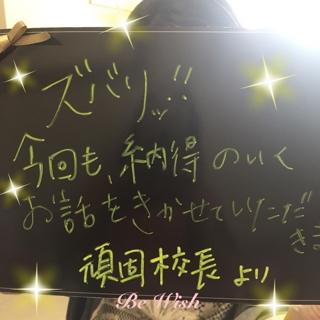 ズバリッ!!
今回も、納得のいく
お話をきかせていただ
きま
頑固校長より
Be Wish